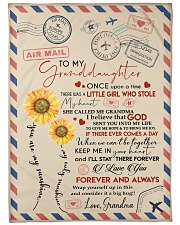 AIR MAIL
TO MY
Granddaughter
ONCE upon a time
THERE WAS A LITTLE GIRL WHO STOLE
My heart
SHE CALLED ME GRANDMA
I believe that GOD
SENT YOU INTO MY LIFE
TO GIVE ME HOPE & TO BRING ME JOY
IF THERE EVER COMES A DAY
When we can't be together
KEEP ME IN your heart
and I'LL STAY THERE FOREVER
I Love You
FOREVER AND ALWAYS
Wrap yourself up in this
and consider it a big hug!
Love, Grandma
You are my sunshine
my only sunshine